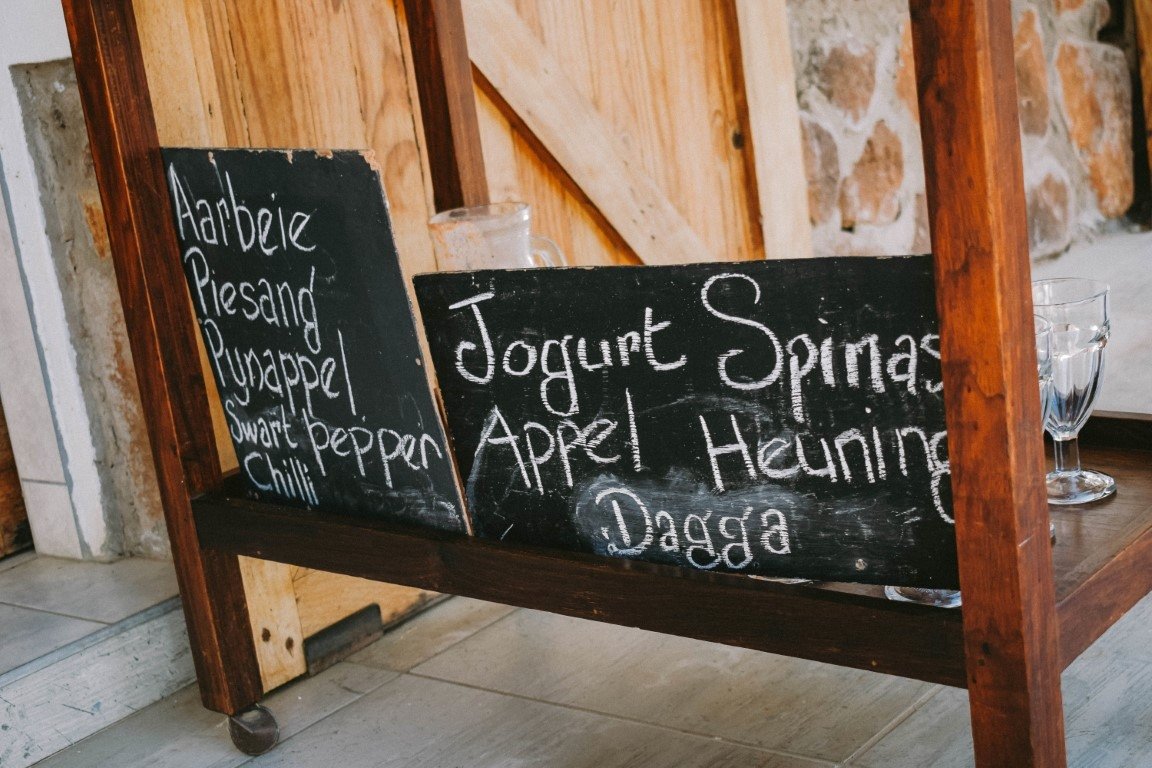 Aarbeie
Piesang
Pynappel
Swart pepper
Chilli
Jogurt Spinas
Appel Heuning
Dagga